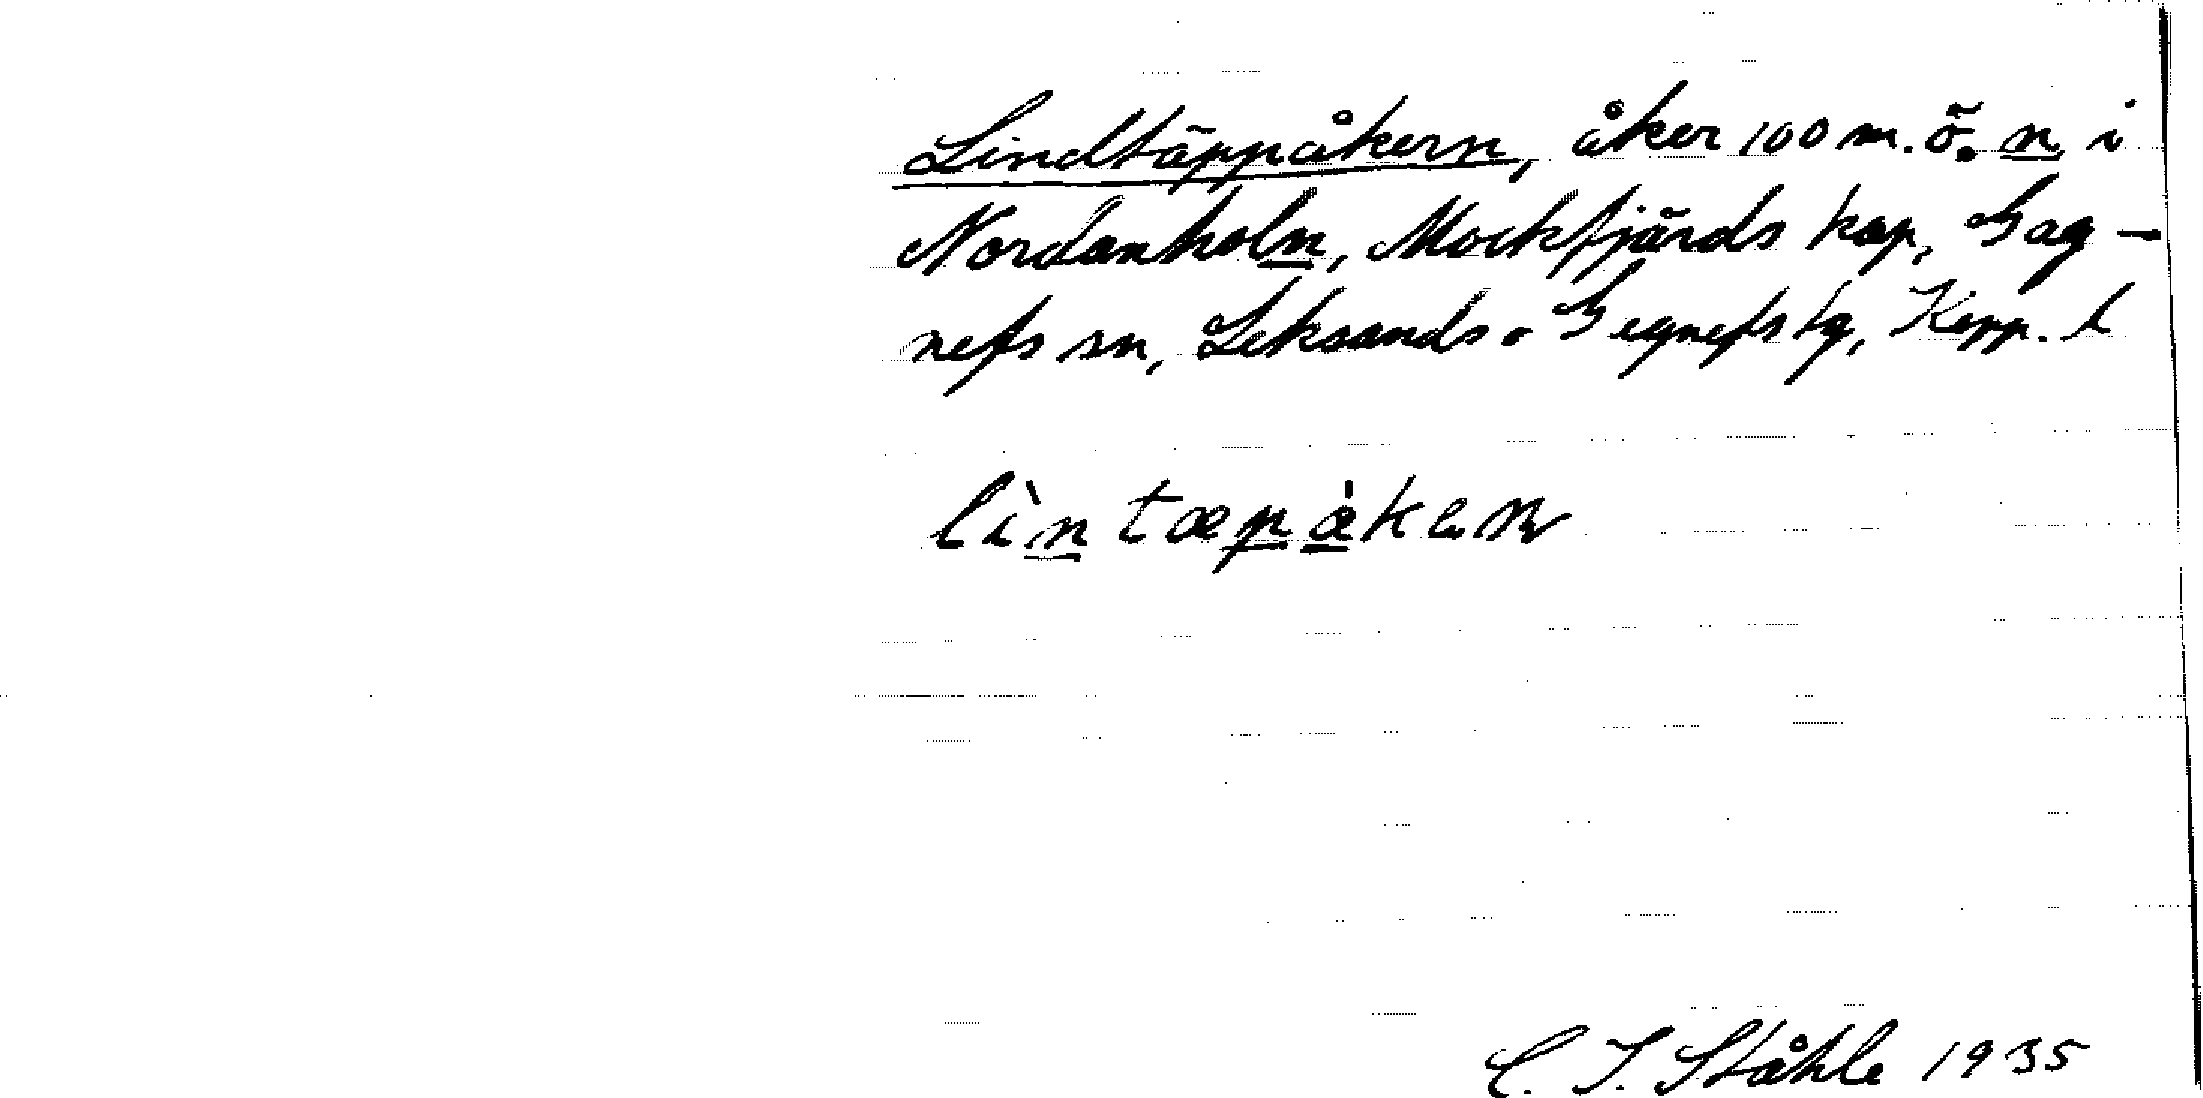 Lindtäppåkern, åker 100 m. ö. n i
Nordanholn, Mockfjärds kap, Gag-
nefs sn, Leksands o Gagnefs tg, Kopp. l
lìntæpàkeṇ
C. I. Ståhle 1935